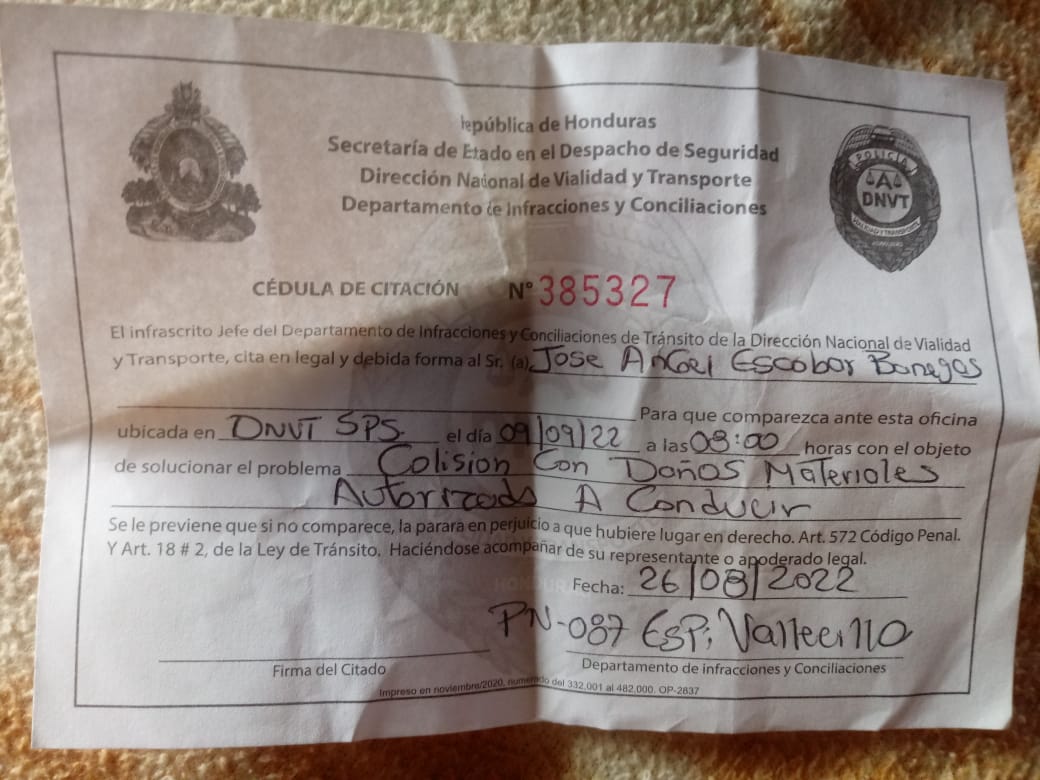 República de Honduras
Secretaría de Etado en el Despacho de Seguridad
Dirección Nacional de Vialidad y Transporte
Departamento de Infracciones y Conciliaciones
POLICIA
DNVT
VIALIDAD Y TRANSPORTE
HONDURAS
CÉDULA DE CITACIÓN N° 385327
El infrascrito Jefe del Departamento de Infracciones y Conciliaciones de Tránsito de la Dirección Nacional de Vialidad
y Transporte, cita en legal y debida forma al Sr. (a) Jose Angel Escobar Banegas
Para que comparezca ante esta oficina
ubicada en DNVT SPS. el día 09/09/22 a las 08:00 horas con el objeto
de solucionar el problema Colision Con Daños Materiales
Autorizado A Conducir
Se le previene que si no comparece, la parara en perjuicio a que hubiere lugar en derecho. Art. 572 Código Penal.
Y Art. 18 # 2, de la Ley de Tránsito. Haciéndose acompañar de su representante o apoderado legal.
Fecha: 26/08/2022
PN-087 Esp. Vallecillo
Firma del Citado
Departamento de infracciones y Conciliaciones
Impreso en noviembre/2020, numerado del 332,001 al 482,000. OP-2837